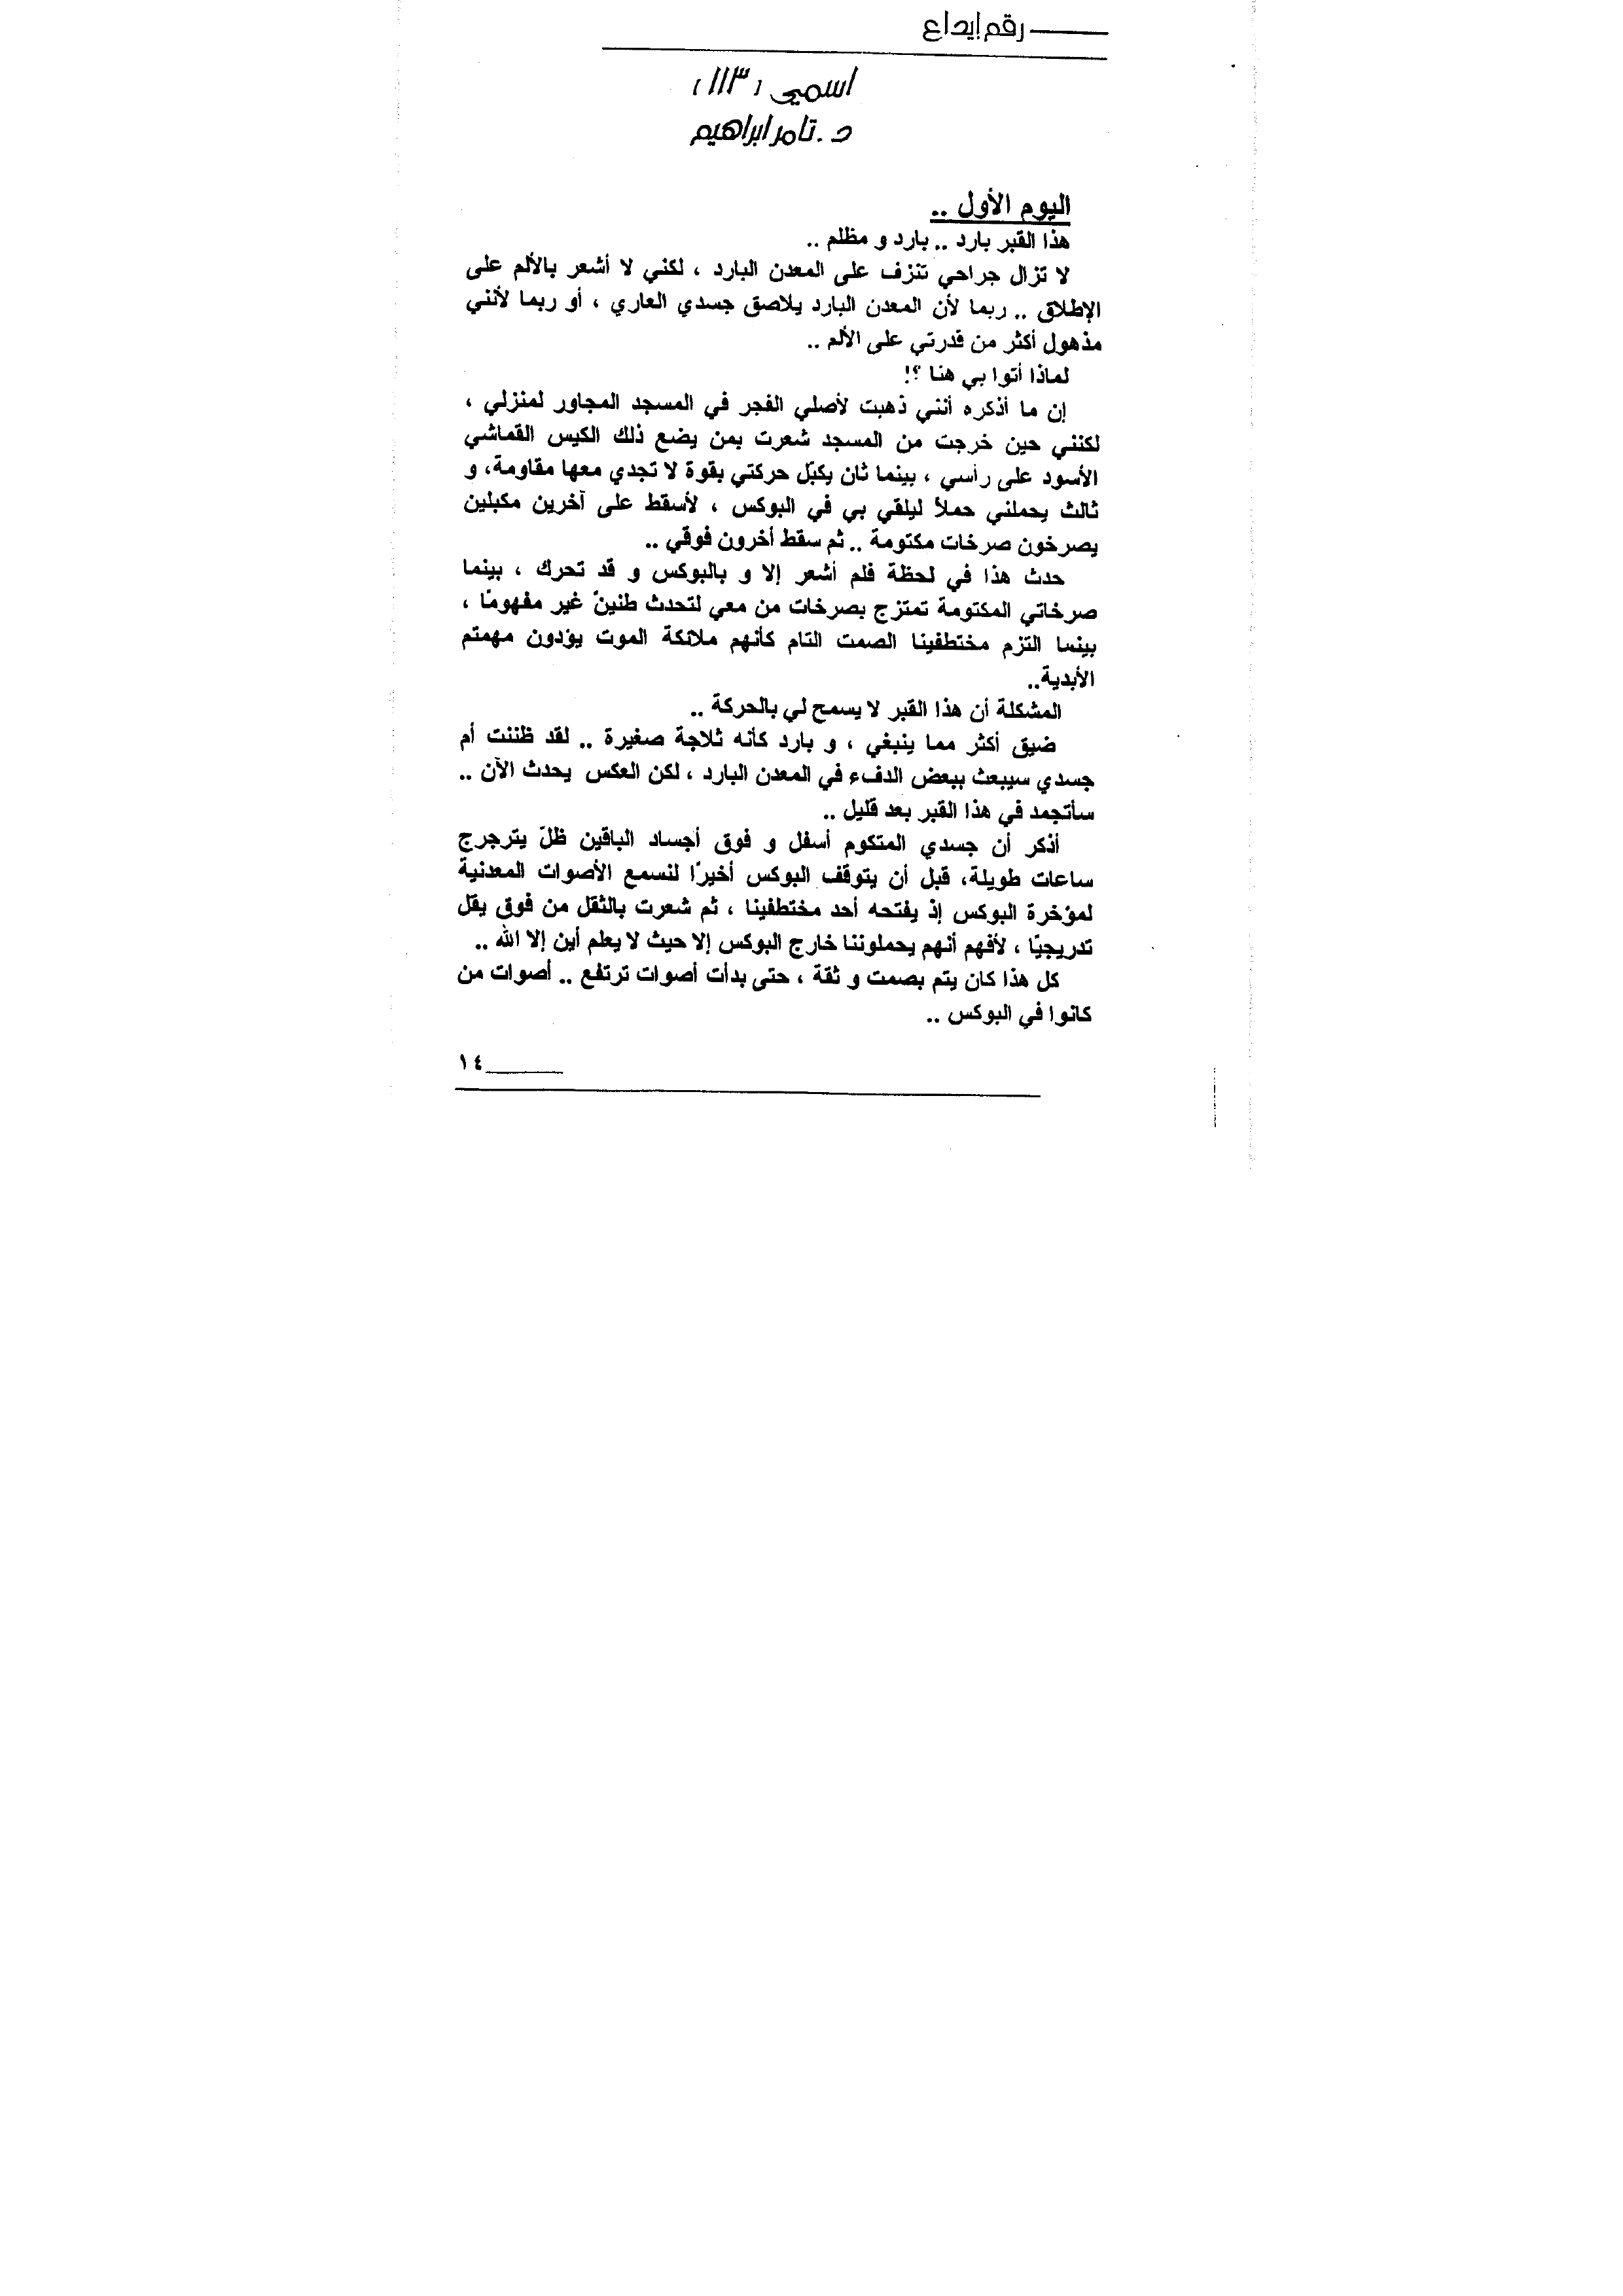 رقم إيداع
اسمي (١١٣)
د. تامر ابراهيم
اليوم الأول ..
هذا القبر بارد .. بارد و مظلم ..
لا تزال جراحي تنزف على المعدن البارد ، لكني لا أشعر بالألم على
الإطلاق .. ربما لأن المعدن البارد يلاصق جسدي العاري ، أو ربما لأنني
مذهول أكثر من قدرتي على الألم ..
لماذا أتوا بي هنا ؟!
إن ما أذكره أنني ذهبت لأصلي الفجر في المسجد المجاور لمنزلي ،
لكنني حين خرجت من المسجد شعرت بمن يضع ذلك الكيس القماشي
الأسود على رأسي ، بينما ثان يكبّل حركتي بقوة لا تجدي معها مقاومة، و
ثالث يحملني حملاً ليلقي بي في البوكس ، لأسقط على آخرين مكبلين
يصرخون صرخات مكتومة .. ثم سقط أخرون فوقي ..
حدث هذا في لحظة فلم أشعر إلا و بالبوكس و قد تحرك ، بينما
صرخاتي المكتومة تمتزج بصرخات من معي لتحدث طنينً غير مفهومًا ،
بينما التزم مختطفينا الصمت التام كأنهم ملائكة الموت يؤدون مهمتم
الأبدية..
المشكلة أن هذا القبر لا يسمح لي بالحركة ..
ضيق أكثر مما ينبغي ، و بارد كأنه ثلاجة صغيرة .. لقد ظننت أم
جسدي سيبعث ببعض الدفء في المعدن البارد ، لكن العكس يحدث الآن ..
سأتجمد في هذا القبر بعد قليل ..
أذكر أن جسدي المتكوم أسفل و فوق أجساد الباقين ظلّ يترجرج
ساعات طويلة، قبل أن يتوقف البوكس أخيرًا لنسمع الأصوات المعدنية
لمؤخرة البوكس إذ يفتحه أحد مختطفينا ، ثم شعرت بالثقل من فوق يقل
تدريجيًا ، لأفهم أنهم يحملوننا خارج البوكس إلا حيث لا يعلم أين إلا الله ..
كل هذا كان يتم بصمت و ثقة ، حتى بدأت أصوات ترتفع .. أصوات من
كانوا في البوكس ..
١٤